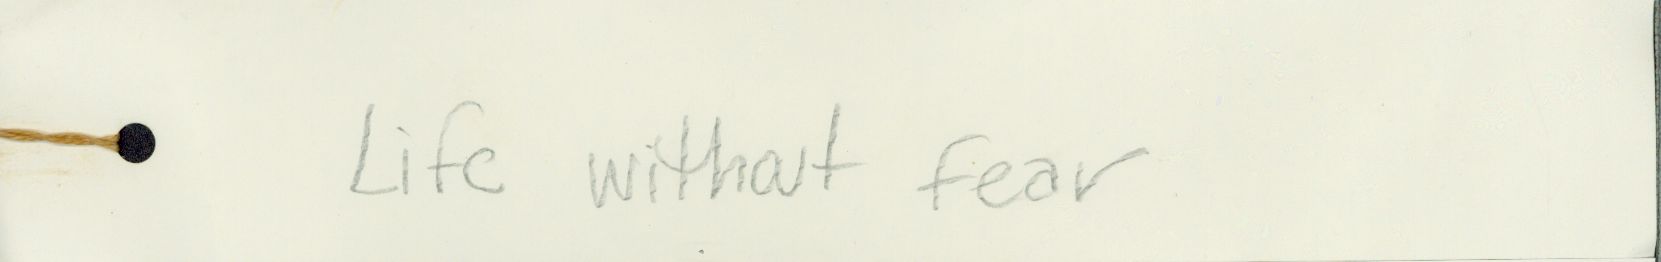 Life without fear